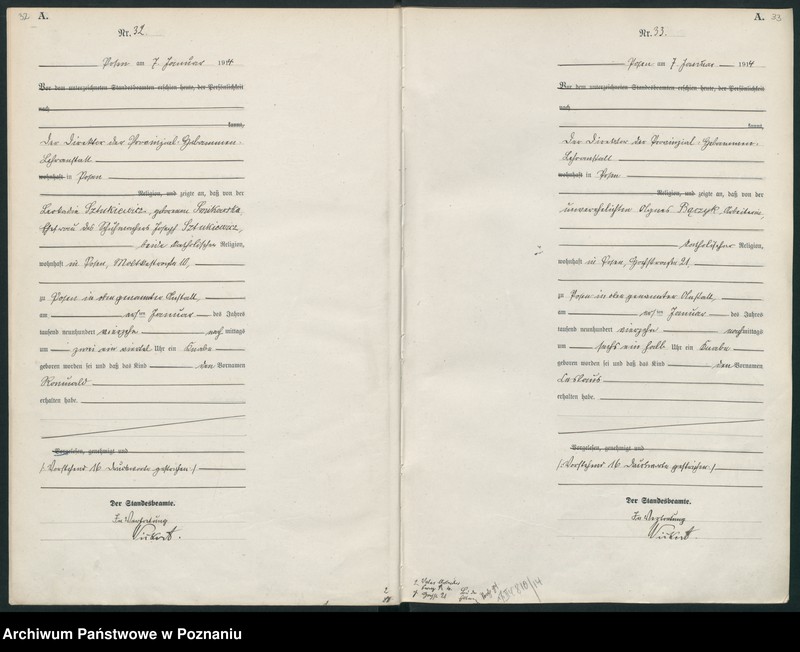 32 A.
Nr. 32.
Posen am 7. Januar 1914
Vor dem unterzeichneten Standesbeamten erschien heute, der Persönlichkeit
nach
kennt,
Der Direktor der Provinzial-Hebammen-
Lehranstalt
wohnhaft in Posen
Religion, und zeigte an, daß von der
Leokadia Sztukiewicz, geborenen
Ehefrau des Schuhmachers Joseph Sztukiewicz,
beide katholischer Religion,
wohnhaft in Posen, Moltkestraße 10,
zu Posen in obengenannter Anstalt,
am ersten Januar des Jahres
tausend neunhundert vierzehn nachmittags
um zwei ein viertel Uhr ein Knabe
geboren worden sei und daß das Kind den Vornamen
Romuald
erhalten habe.
Vorgelesen, genehmigt und
/: Vorstehend 16 Druckworte gestrichen :/
Der Standesbeamte.
In Vertretung
A. 33
Nr. 33.
Posen am 7. Januar 1914
Vor dem unterzeichneten Standesbeamten erschien heute, der Persönlichkeit
nach
kennt,
Der Direktor der Provinzial-Hebammen-
Lehranstalt
wohnhaft in Posen
Religion, und zeigte an, daß von der
unverehelichten Agnes Bączyk, Arbeiterin,
katholischer Religion,
wohnhaft in Posen, 21,
zu Posen in obengenannter Anstalt,
am ersten Januar des Jahres
tausend neunhundert vierzehn nachmittags
um sechs ein halb Uhr ein Knabe
geboren worden sei und daß das Kind den Vornamen
erhalten habe.
Vorgelesen, genehmigt und
/: Vorstehend 16 Druckworte gestrichen :/
Der Standesbeamte.
In Vertretung
Archiwum Państwowe w Poznaniu